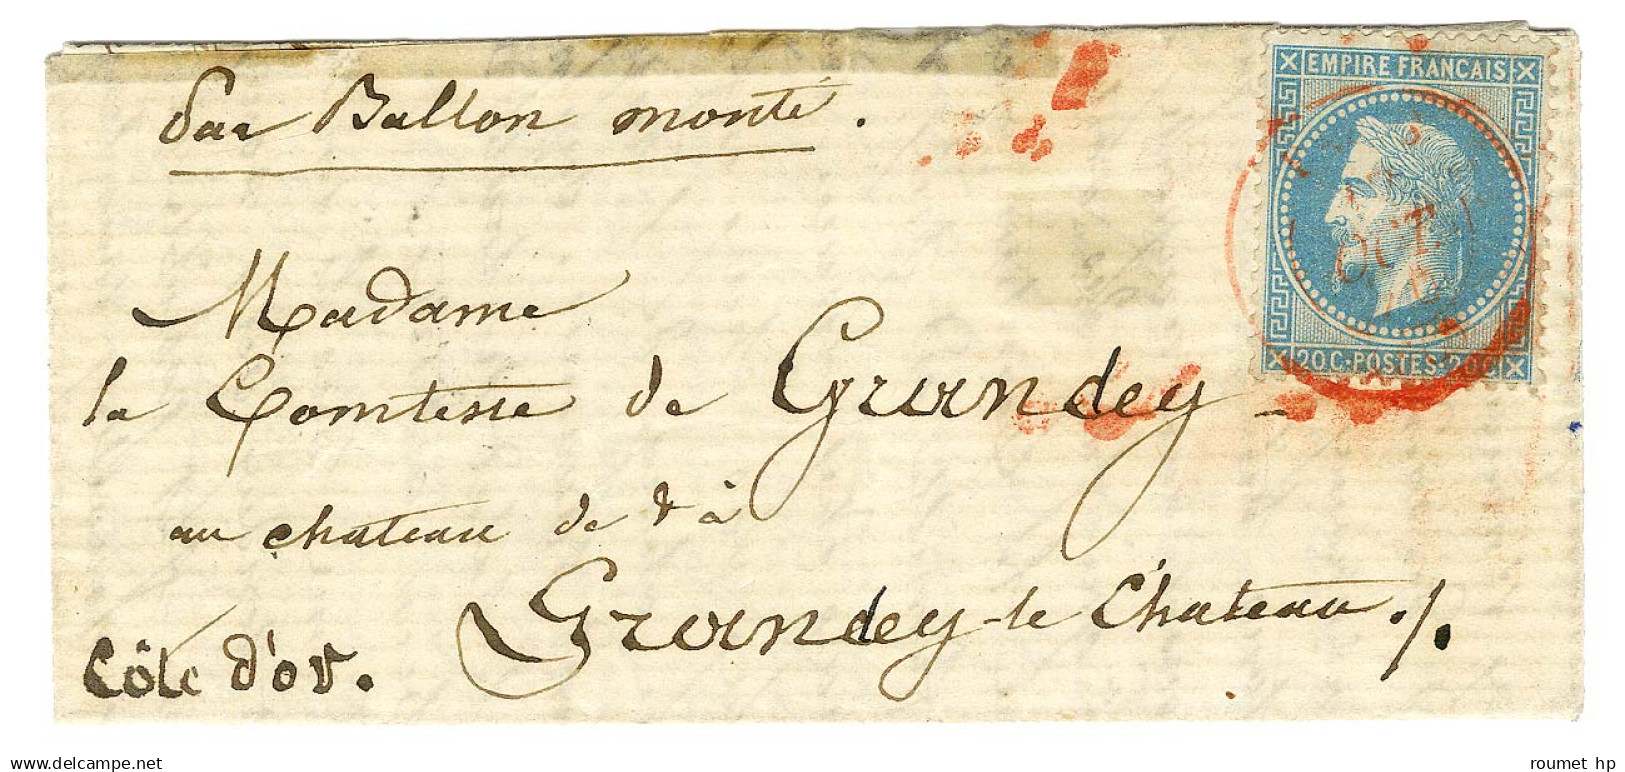 Par Ballon monté.
EMPIRE FRANCAIS
OCT.
20C·POSTES·20C
Madame
la Comtesse de Grandey
au chateau de & à
Grandey-le Chateau./.
Côte d'or.
roumet hp